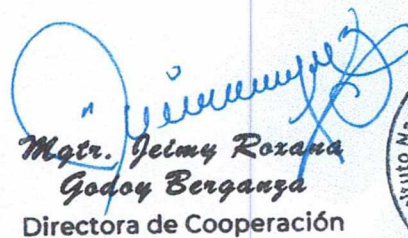 Mgtr. Jeimy Roxana
Godoy Berganza
Directora de Cooperación